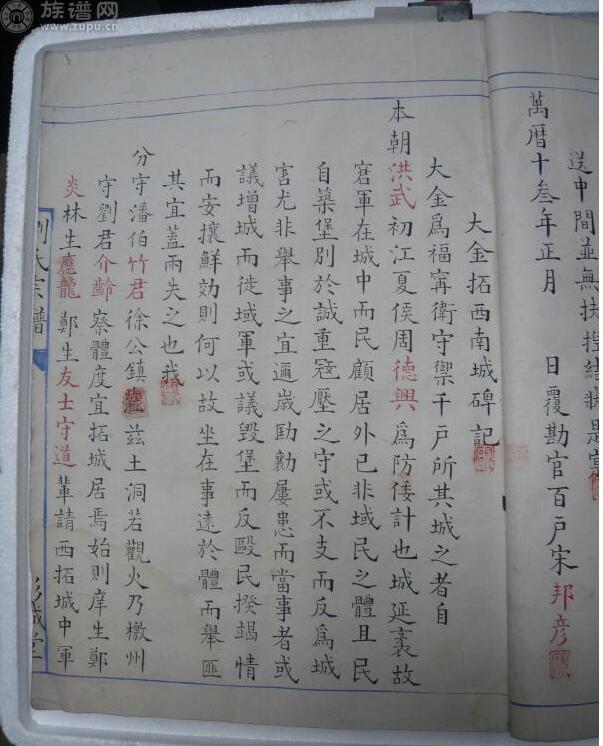 族谱网
www.zupu.cn
送中間並無扶捏結狀是實
萬曆十叁年正月 日覆勘官百戶宋邦彦
大金拓西南城碑記
大金爲福寧衛守禦千戶所其城之者自
本朝洪武初江夏侯周德興爲防倭計也城延袤故
窘軍在城中而民顧居外已非域民之體且民
自築堡別於誠重寇壓之守或不支而反爲城
害尤非舉事之宜邇歲劻勷屢患而當事者或
議增城而徙域軍或議毀堡而反毆民揆竭情
而安攘鮮効則何以故坐在事遠於體而舉匪
其宜蓋兩失之也我
分守潘伯竹君徐公鎮 茲土洞若觀火乃檄州
守劉君介齡察體度宜拓城居焉始則庠生鄭
炎林生應龍鄭生友士守道輩請西拓城中軍
劉氏宗譜
彭城堂